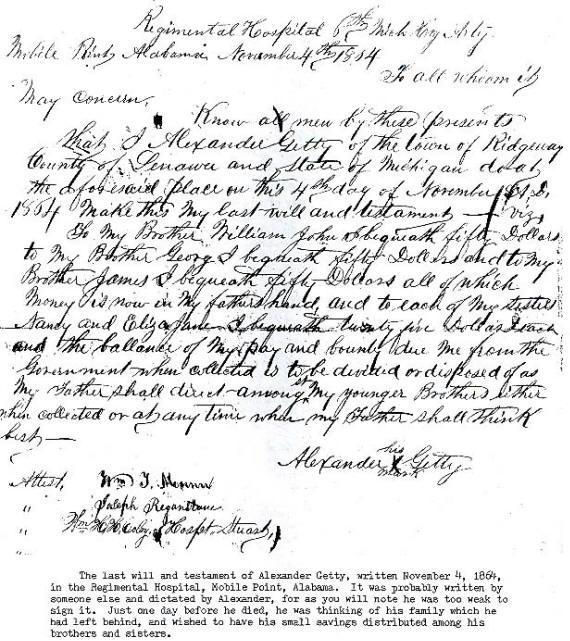 Regimental Hospital 6th Mich Hvy Arty.
Mobile Point Alabama November 4th 1864
To all whom it
May Concern,
Know all men by these presents
that I Alexander Getty of the town of Ridgeway
County of Lenawee and State of Michigan do at
the aforesaid place on this 4th day of November
1864 Make this My last will and testament — Viz,
To My Brother William John I bequeath fifty Dollars
to My Brother George I bequeath fifty Dollars and to My
Brother James I bequeath fifty Dollars all of which
Money is now in My fathers hand, and to each of My Sisters
Nancy and Eliza Jane I bequeath twenty five Dollars each
and the ballance of My pay and bounty due Me from the
Government when collected is to be divided or disposed of as
My Father shall direct among st My younger Brothers either
when collected or at any time when my Father shall think
best —
Alexander his X mark Getty
Attest, Wm T.
" Joseph
" Wm H. H. Hospt. Stuard,
The last will and testament of Alexander Getty, written November 4, 1864,
in the Regimental Hospital, Mobile Point, Alabama. It was probably written by
someone else and dictated by Alexander, for as you will note he was too weak to
sign it. Just one day before he died, he was thinking of his family which he
had left behind, and wished to have his small savings distributed among his
brothers and sisters.